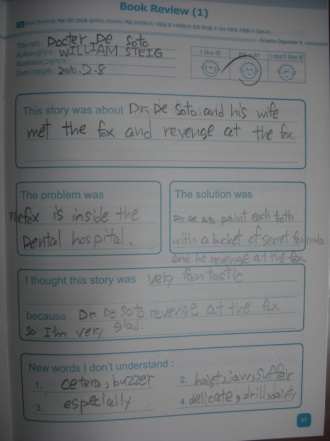 Book Review (1)
Docter. De Soto
WILLIAM STEIG
2010. 2. 8
I liked it!
I don't like it!
This story was about Dr. De Soto and his wife
met the fox and revenge at the fox
The problem was
The fox is inside the
Dental hospital.
The solution was
Dr. De Soto paint each tooth
with a bucket of secret formula
and he revenge at the fox
I thought this story was very fantastic
because Dr. De Soto revenge at the fox
so I'm very glad.
New words I don't understand :
1. cetera, buzzer
2. hoist, jaw, suffer
3. especially
4. delicate, drill, dainty